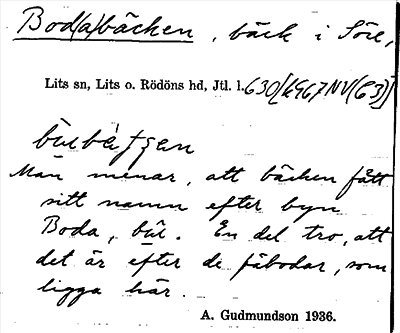 Bod(a)bäcken, bäck i Söre,
Lits sn, Lits o. Rödöns hd, Jtl. l. 630[K967NV(C3)]
Man menar, att bäcken fått
sitt namn efter byn
Boda, búι. En del tro, att
det är efter de fäbodar, som
ligga här.
A. Gudmundson 1936.